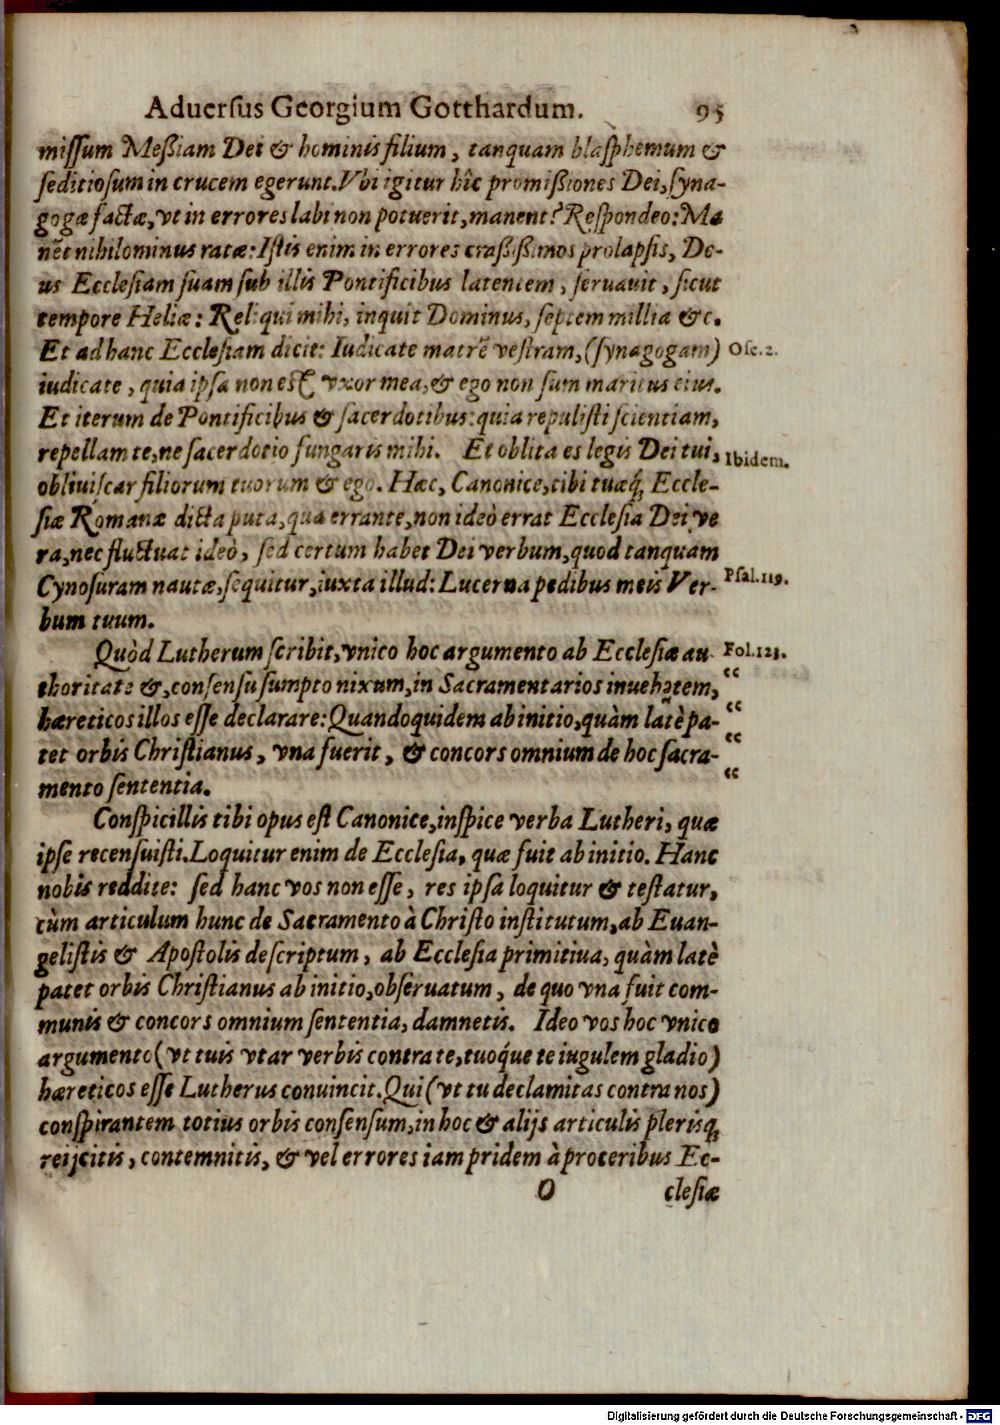 Aduersus Georgium Gotthardum. 95
missum Meßiam Dei & hominis filium, tanquam blasphemum &
seditiosum in crucem egerunt. Vbi igitur hîc promißiones Dei, syna-
gogæ factæ, vt in errores labi non potuerit, manent? Respondeo: Ma
nēt nihilominus ratæ: Istis enim in errores craßißimos prolapsis, De-
us Ecclesiam suam sub illis Pontificibus latentem, seruauit, sicut
tempore Heliæ: Reliqui mihi, inquit Dominus, septem millia &c.
Et ad hanc Ecclesiam dicit: Iudicate matrē vestram, (synagogam) Ose. 2.
iudicate, quia ipsa non est vxor mea, & ego non sum maritus eius.
Et iterum de Pontificibus & sacerdotibus: quia repulisti scientiam,
repellam te, ne sacerdotio fungaris mihi. Et oblita es legis Dei tui, Ibidem.
obliuiscar filiorum tuorum & ego. Hæc, Canonice, tibi tuæq́; Eccle-
siæ Romanæ dicta puta, qua errante, non ideò errat Ecclesia Dei ve
ra, nec fluctuat ideò, sed certum habet Dei verbum, quod tanquam
Cynosuram nautæ, sequitur, iuxta illud: Lucerna pedibus meis Ver- Psal. 119.
bum tuum.
Quòd Lutherum scribit, vnico hoc argumento ab Ecclesiæ au- Fol. 123.
thoritate &, consensu sumpto nixum, in Sacramentarios inuehētem, “
hæreticos illos esse declarare: Quandoquidem ab initio, quàm latè pa- “
tet orbis Christianus, vna fuerit, & concors omnium de hoc sacra- “
mento sententia. “
Conspicillis tibi opus est Canonice, inspice verba Lutheri, quæ
ipse recensuisti. Loquitur enim de Ecclesia, quæ fuit ab initio. Hanc
nobis reddite: sed hanc vos non esse, res ipsa loquitur & testatur,
cùm articulum hunc de Sacramento à Christo institutum, ab Euan-
gelistis & Apostolis descriptum, ab Ecclesia primitiua, quàm latè
patet orbis Christianus ab initio, obseruatum, de quo vna fuit com-
munis & concors omnium sententia, damnetis. Ideo vos hoc vnico
argumento (vt tuis vtar verbis contra te, tuoq́ue te iugulem gladio)
hæreticos esse Lutherus conuincit. Qui (vt tu declamitas contra nos)
conspirantem totius orbis consensum, in hoc & alijs articulis plerisq́;
reijcitis, contemnitis, & vel errores iam pridem à proceribus Ec-
O clesiæ
Digitalisierung gefördert durch die Deutsche Forschungsgemeinschaft - DFG